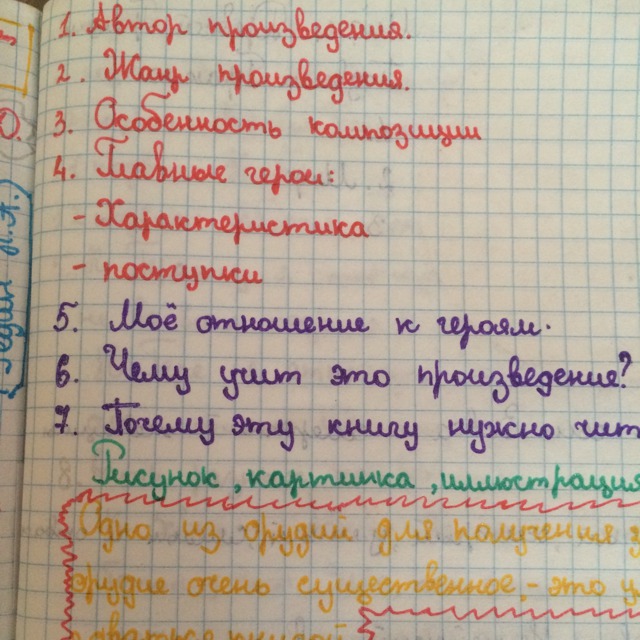 1. Автор произведения.
2. Жанр произведения.
3. Особенность композиции
4. Главные герои:
- Характеристика
- поступки
5. Моё отношение к героям.
6. Чему учит это произведение?
7. Почему эту книгу нужно чит
Рисунок, картинка, иллюстрация
Одно из орудий для получения
орудие очень существенное, - это у